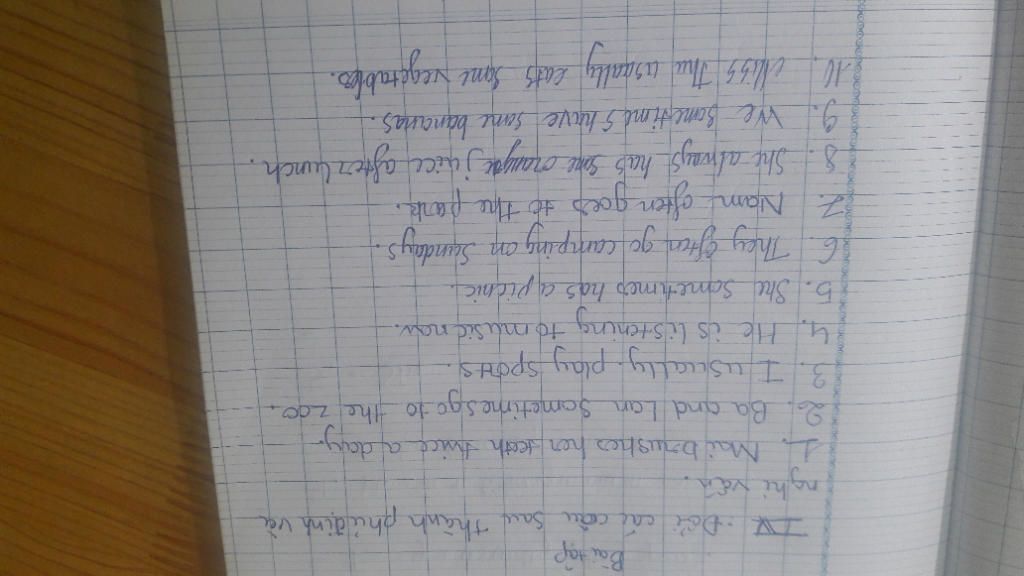 Bài tập
IV. Đổi các câu sau thành phủ định và
nghi vấn.
1. Mai brushes her teeth twice a day.
2. Ba and Lan sometimes go to the zoo.
3. I usually play sports.
4. He is listening to music now.
5. She sometimes has a picnic.
6. They often go camping on Sundays.
7. Nam often goes to the park.
8. She always has some orange juice after lunch.
9. We sometimes have some bananas.
10. Miss Thu usually eats some vegetables.